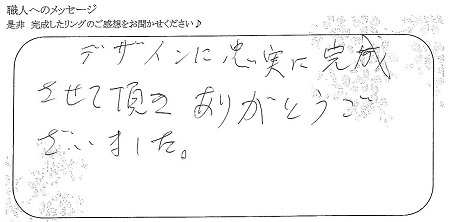 職人へのメッセージ
是非 完成したリングのご感想をお聞かせください♪
デザインに忠実に完成
させて頂き ありがとうご
ざいました。